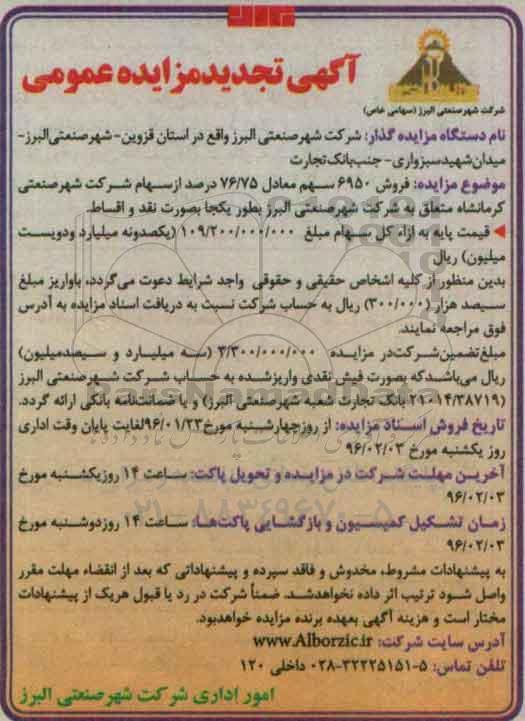 آگهی تجدید مزایده عمومی
شرکت شهر صنعتی البرز (سهامی خاص)
نام دستگاه مزایده گذار: شرکت شهر صنعتی البرز واقع در استان قزوین - شهر صنعتی البرز -
میدان شهید سبزواری - جنب بانک تجارت
موضوع مزایده: فروش ۶۹۵۰ سهم معادل ۷۶/۷۵ درصد از سهام شرکت شهر صنعتی
کرمانشاه متعلق به شرکت شهر صنعتی البرز بطور یکجا بصورت نقد و اقساط.
◄ قیمت پایه به ازاء کل سهام مبلغ ۱۰۹/۲۰۰/۰۰۰/۰۰۰ (یکصدونه میلیارد ودویست
میلیون) ریال
بدین منظور از کلیه اشخاص حقیقی و حقوقی واجد شرایط دعوت می‌گردد، باواریز مبلغ
سیصد هزار (۳۰۰/۰۰۰) ریال به حساب شرکت نسبت به دریافت اسناد مزایده به آدرس
فوق مراجعه نمایند.
مبلغ تضمین شرکت در مزایده ۳/۳۰۰/۰۰۰/۰۰۰ (سه میلیارد و سیصدمیلیون)
ریال می‌باشدکه بصورت فیش نقدی واریز شده به حساب شرکت شهر صنعتی البرز
(۲۱۰۱۴/۳۸۷۱۹ بانک تجارت شعبه شهر صنعتی البرز) و یا ضمانت‌نامه بانکی ارائه گردد.
تاریخ فروش اسناد مزایده: از روز چهارشنبه مورخ ۹۶/۰۱/۲۳ لغایت پایان وقت اداری
روز یکشنبه مورخ ۹۶/۰۲/۰۳
آخرین مهلت شرکت در مزایده و تحویل پاکت: ساعت ۱۴ روز یکشنبه مورخ
۹۶/۰۲/۰۳
زمان تشکیل کمیسیون و بازگشایی پاکت‌ها: ساعت ۱۴ روز دوشنبه مورخ
۹۶/۰۲/۰۳
به پیشنهادات مشروط، مخدوش و فاقد سپرده و پیشنهاداتی که بعد از انقضاء مهلت مقرر
واصل شود ترتیب اثر داده نخواهدشد. ضمناً شرکت در رد یا قبول هریک از پیشنهادات
مختار است و هزینه آگهی بعهده برنده مزایده خواهدبود.
آدرس سایت شرکت: www.Alborzic.ir
تلفن تماس: ۵-۳۲۲۲۵۱۵۱-۰۲۸ داخلی ۱۲۰
امور اداری شرکت شهر صنعتی البرز
۰۲۱-۸۸۳۴۹۶۷۰-۵